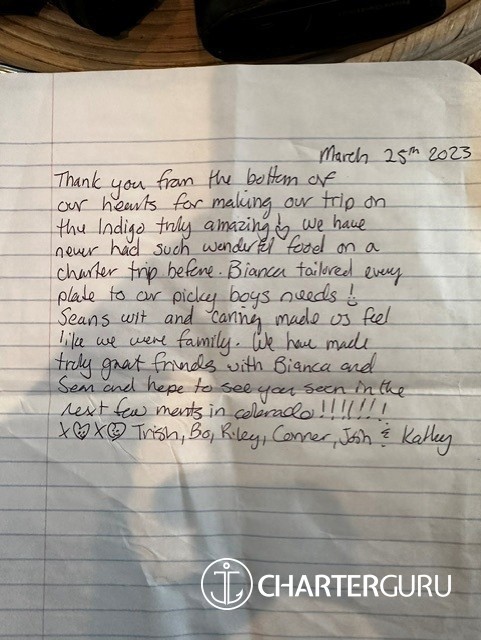 March 25th 2023
Thank you from the bottom of
our hearts for making our trip on
the Indigo truly amazing! we have
never had such wonderful food on a
charter trip before. Bianca tailored every
plate to our picky boys needs!
Seans wit and caring made us feel
like we were family. We have made
truly great friends with Bianca and
Sean and hope to see you soon in the
next few months in colorado!!!!!!!
X♡X♡ Trish, Bo, Riley, Conner, Josh & Kathy
CHARTERGURU